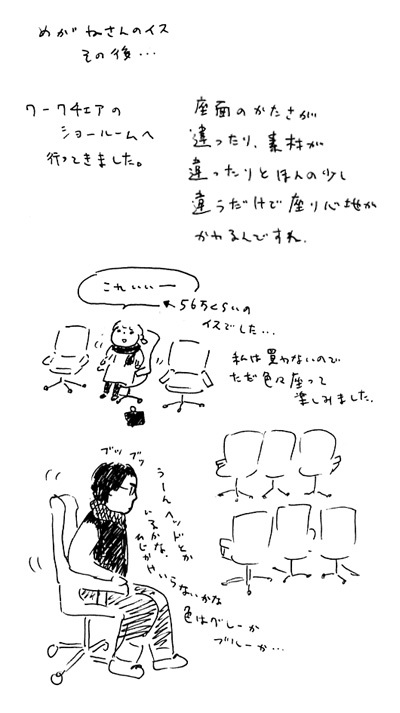 めがねさんのイス
その後…
ワークチェアの
ショールームへ
行ってきました。
座面のかたさが
違ったり、素材が
違ったりとほんの少し
違うだけで座り心地が
かわるんですね。
これいいー
←56万くらいの
イスでした…
私は買わないので
ただ色々座って
楽しみました。
ブツブツ
うーんヘッドとか
いるかな、
ひじかけいらないかな
色はグレーか
ブルーか…